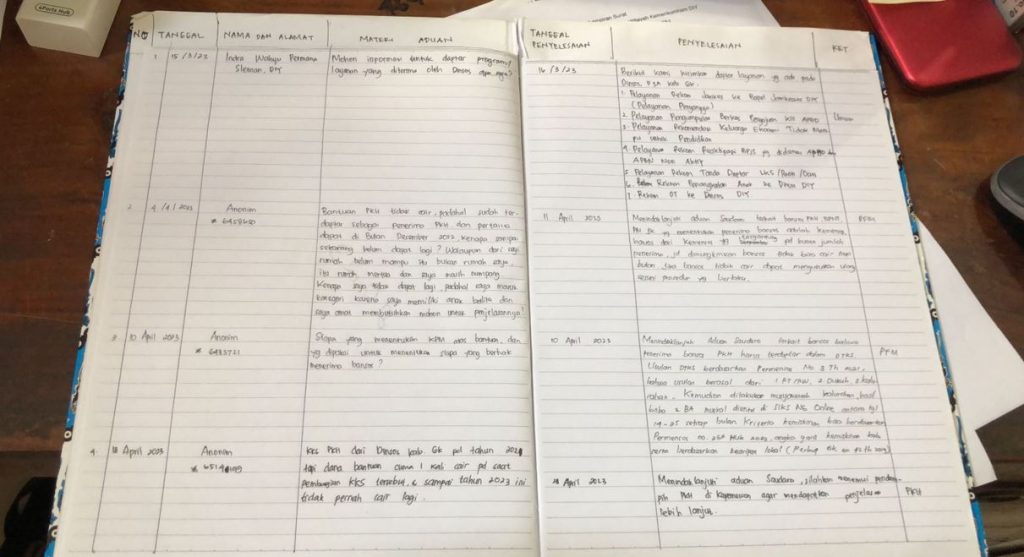 ePorts Hub
NO
TANGGAL
NAMA DAN ALAMAT
MATERI ADUAN
TANGGAL
PENYELESAIAN
PENYELESAIAN
KET
1
15/3/23
Indra Wahyu Permana
Sleman, DIY
Mohon informasi untuk daftar program/
layanan yang diterima oleh Dinsos apa saja?
16/3/23
Berikut kami kirimkan daftar layanan yg ada pada
Dinsos P3A Kab GK.
1. Pelayanan Rekom Jamkes ke Bapel Jamkesos DIY
(Pelayanan Penyangga)
2. Pelayanan Pengumpulan Berkas Pengajuan KIS APBD
Umum
3. Pelayanan Rekomendasi Keluarga Ekonomi Tidak Mam
pu untuk Pendidikan
4. Pelayanan Rekom Reaktivasi BPJS yg didanai APBD dan
APBN Non Aktif
5. Pelayanan Rekom Tanda Daftar LKS/Panti/Orsos
6. Rekom Pengangkatan Anak ke Dinsos DIY
7. Rekom OT ke Dinsos DIY.
2
4/4/2023
Anonim
* 6458460
Bantuan PKH tidak cair, padahal sudah ter-
daftar sebagai penerima PKH dan pertama
dapat di Bulan December 2022, kenapa sampai
sekarang belum dapat lagi? Walaupun dari segi
rumah belum mampu itu bukan rumah saya,
itu rumah mertua dan saya masih numpang
Kenapa saya tidak dapat lagi, padahal saya masuk
kategori karena saya memiliki anak balita dan
saya amat membutuhkan mohon untuk penjelasannya!
11 April 2023
Menindaklanjuti aduan Saudara terkait bansos PKH, BPNT,
yg menentukan penerima bansos adalah Kemensos,
bansos dari Kemensos tergantung pd kuota jumlah
penerima, jd dimungkinkan bansos tidak bisa cair tiap
bulan, jika bansos tidak cair dapat mengusulkan ulang
sesuai prosedur yg berlaku.
PFM
3
10 April 2023
Anonim
* 6483721
Siapa yang menentukan KPM atas bantuan, dan
yg dipakai untuk menentukan siapa yang berhak
menerima bansos?
10 April 2023
Menindaklanjuti Aduan Saudara terkait bansos bahwa
penerima bansos PKH harus terdaftar dalam DTKS.
Usulan DTKS berdasarkan Permensos No 3 Th 2021,
bahwa usulan berasal dari 1. RT/RW, 2. Dukuh, 3. Kelu
rahan. Kemudian dilakukan musyawarah kelurahan, hasil
BA Muskal diisikan di SIKS NG Online antara tgl
14-25 setiap bulan. Kriteria kemiskinan bisa berdasarkan
Permensos no. 262
berdasarkan kearifan lokal
PFM
4
18 April 2023
Anonim
KKS PKH dari Dinsos Kab GK pd tahun 2021
tapi dana bantuan cuma 1 kali cair pd saat
pembagian KKS tersebut, & sampai tahun 2023 ini
tidak pernah cair lagi.
18 April 2023
Menindaklanjuti aduan Saudara, silahkan menemui pendam-
ping PKH di Kapanewon agar mendapatkan penjelasan
lebih lanjut.
PKH